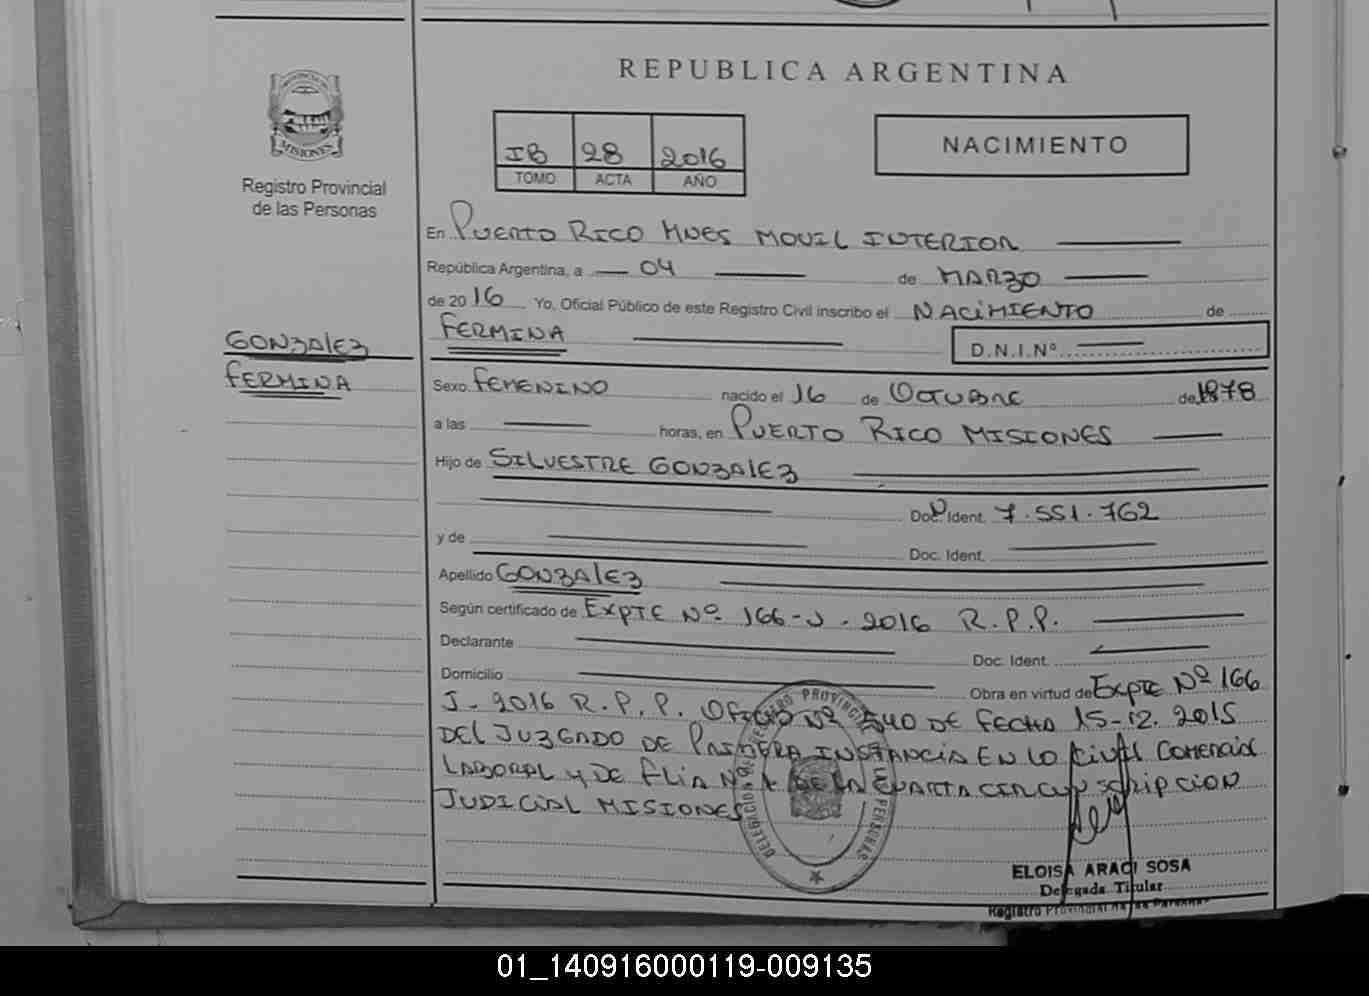 REPUBLICA ARGENTINA
PROVINCIA DE
MISIONES
Registro Provincial
de las Personas
IB 28 2016
TOMO ACTA AÑO
NACIMIENTO
En PUERTO RICO MNES MOVIL INTERIOR
República Argentina, a 04 de MARZO
de 2016 Yo, Oficial Público de este Registro Civil inscribo el NACIMIENTO de
GONZALEZ
FERMINA
FERMINA
D.N.I.Nº
Sexo FEMENINO nacido el 16 de OCTUBRE de 1878
a las horas, en PUERTO RICO MISIONES
Hijo de SILVESTRE GONZALEZ
Doc. Ident. 7.551.762
y de Doc. Ident.
Apellido GONZALEZ
Según certificado de EXPTE Nº 166-J-2016 R.P.P.
Declarante Doc. Ident.
Domicilio Obra en virtud de EXPTE Nº 166
J-2016 R.P.P. OFICIO Nº 540 DE FECHA 15-12.2015
DEL JUZGADO DE PRIMERA INSTANCIA EN LO CIVIL COMERCIAL
LABORAL Y DE FLIA Nº 1 DE LA CUARTA CIRCUNSCRIPCION
JUDICIAL MISIONES
DELEGACION DEL REGISTRO PROVINCIAL DE LAS PERSONAS
ELOISA ARACI SOSA
Delegada Titular
Registro Provincial de las Personas
01_140916000119-009135